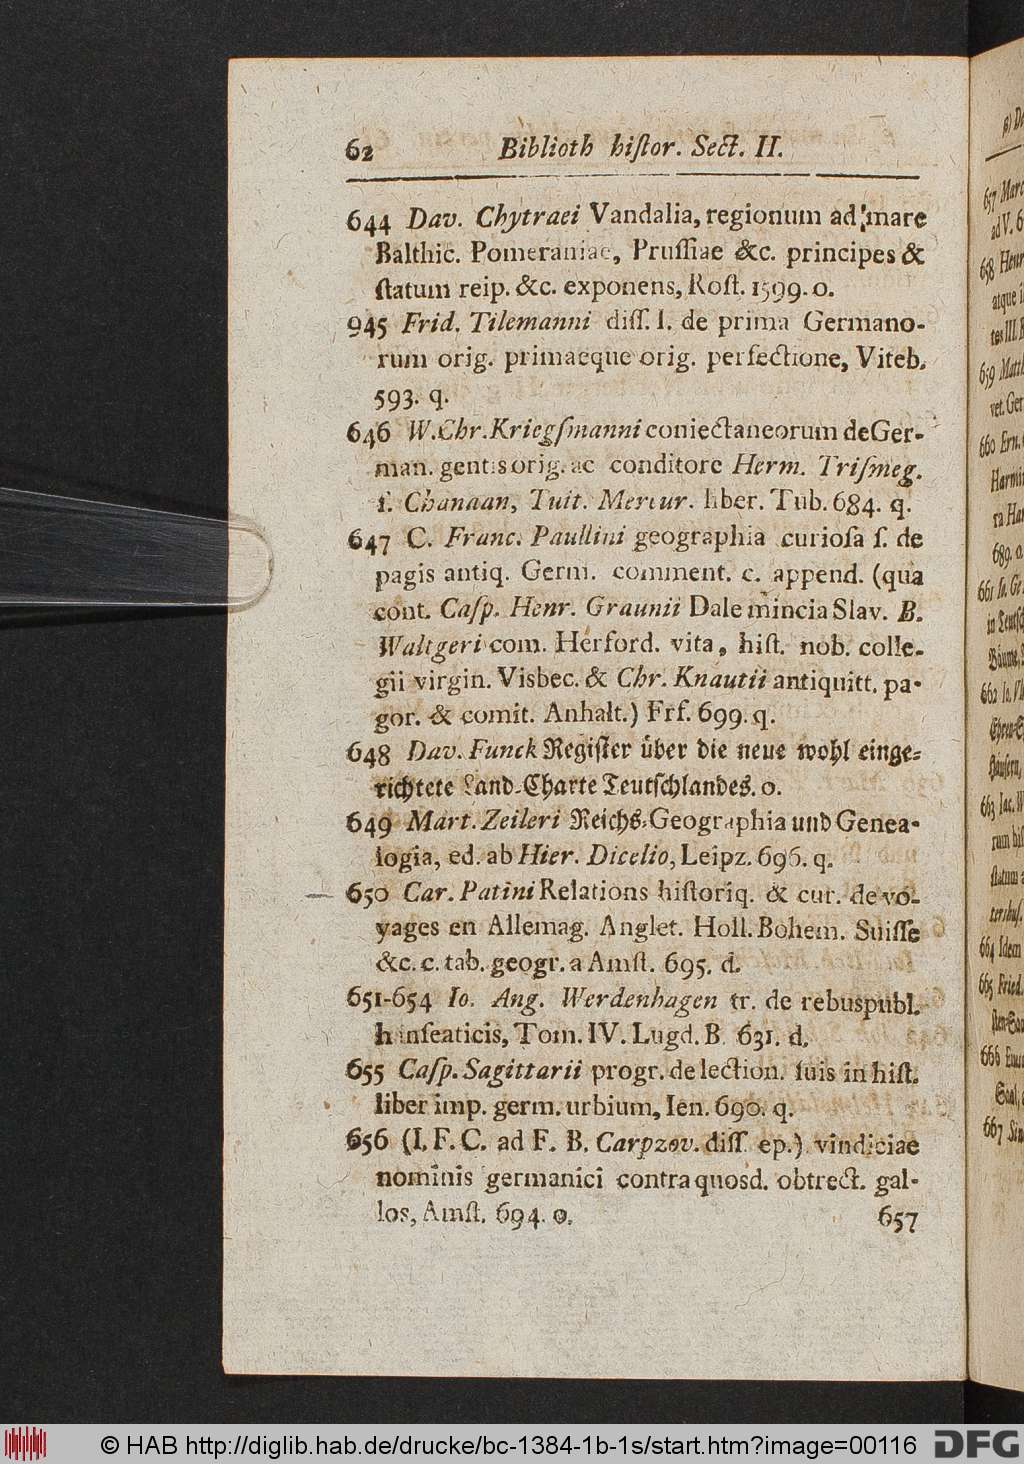 62 Biblioth hiſtor. Sect. II.
644 Dav. Chytraei Vandalia, regionum ad mare
Balthic. Pomeraniae, Pruſſiae &c. principes &
ſtatum reip. &c. exponens, Roſt. 1599. o.
945 Frid. Tilemanni diſſ. I. de prima Germano-
rum orig. primaeque orig. perfectione, Viteb.
593. q.
646 W. Chr. Kriegſmanni coniectaneorum de Ger-
man. gentis orig. ac conditore Herm. Triſmeg.
ſ. Chanaan, Tuit. Mercur. liber. Tub. 684. q.
647 C. Franc. Paullini geographia curioſa ſ. de
pagis antiq. Germ. comment. c. append. (qua
cont. Caſp. Henr. Graunii Dalemincia Slav. B.
Waltgeri com. Herford. vita, hiſt. nob. colle-
gii virgin. Visbec. & Chr. Knautii antiquitt. pa-
gor. & comit. Anhalt.) Frf. 699. q.
648 Dav. Funck Regiſter über die neue wohl einge-
richtete Land-Charte Teutſchlandes. o.
649 Mart. Zeileri Reichs-Geographia und Genea-
logia, ed. ab Hier. Dicelio, Leipz. 696. q.
650 Car. Patini Relations hiſtoriq. & cur. de vo-
yages en Allemag. Anglet. Holl. Bohem. Suiſſe
&c. c. tab. geogr. a Amſt. 695. d.
651-654 Io. Ang. Werdenhagen tr. de rebuspubl.
hanſeaticis, Tom. IV. Lugd. B. 631. d.
655 Caſp. Sagittarii progr. de lection. ſuis in hiſt.
liber imp. germ. urbium, Ien. 690. q.
656 (I. F. C. ad F. B. Carpzov. diſſ. ep.) vindiciae
nominis germanici contra quosd. obtrect. gal-
los, Amſt. 694. o.
657
657 Marc
ad V. 6
658 Henr
atque i
tes III.
659 Matth
vet. Ger
660 Ern.
Harmin
ra Har
689. o.
661 Io. Ge
in Teutſch
Bäume,
662 Io.
Ehren-
Häuſern,
663 Iac. W
rum hiſ
ſtatum a
terbuſ.
664 Idem
665 Fried.
666
Saal,
667
© HAB http://diglib.hab.de/drucke/bc-1384-1b-1s/start.htm?image=00116
DFG